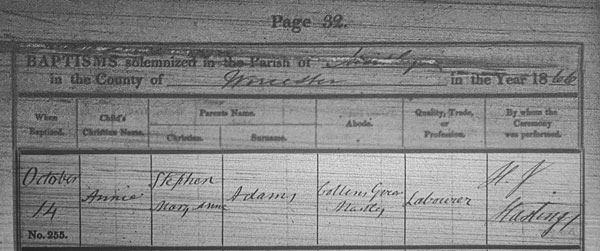 Page 32.
BAPTISMS solemnized in the Parish of
in the County of Worcester in the Year 1866
When Baptized.
Child's Christian Name.
Parents Name.
Christian.
Surname.
Abode.
Quality, Trade, or Profession.
By whom the Ceremony was performed.
October
14
No. 255.
Annie
Stephen
Mary Anne
Adams
Collens Green
Labourer
H. J
Hastings